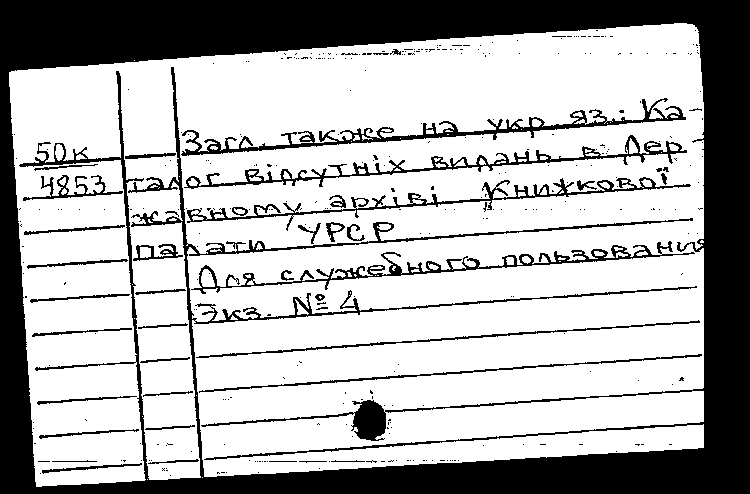 50к Загл. также на укр. яз.: Ка-
4853 талог відсутніх видань в Дер-
жавному архіві Книжкової
палати УРСР
Для служебного пользования
Экз. № 4.